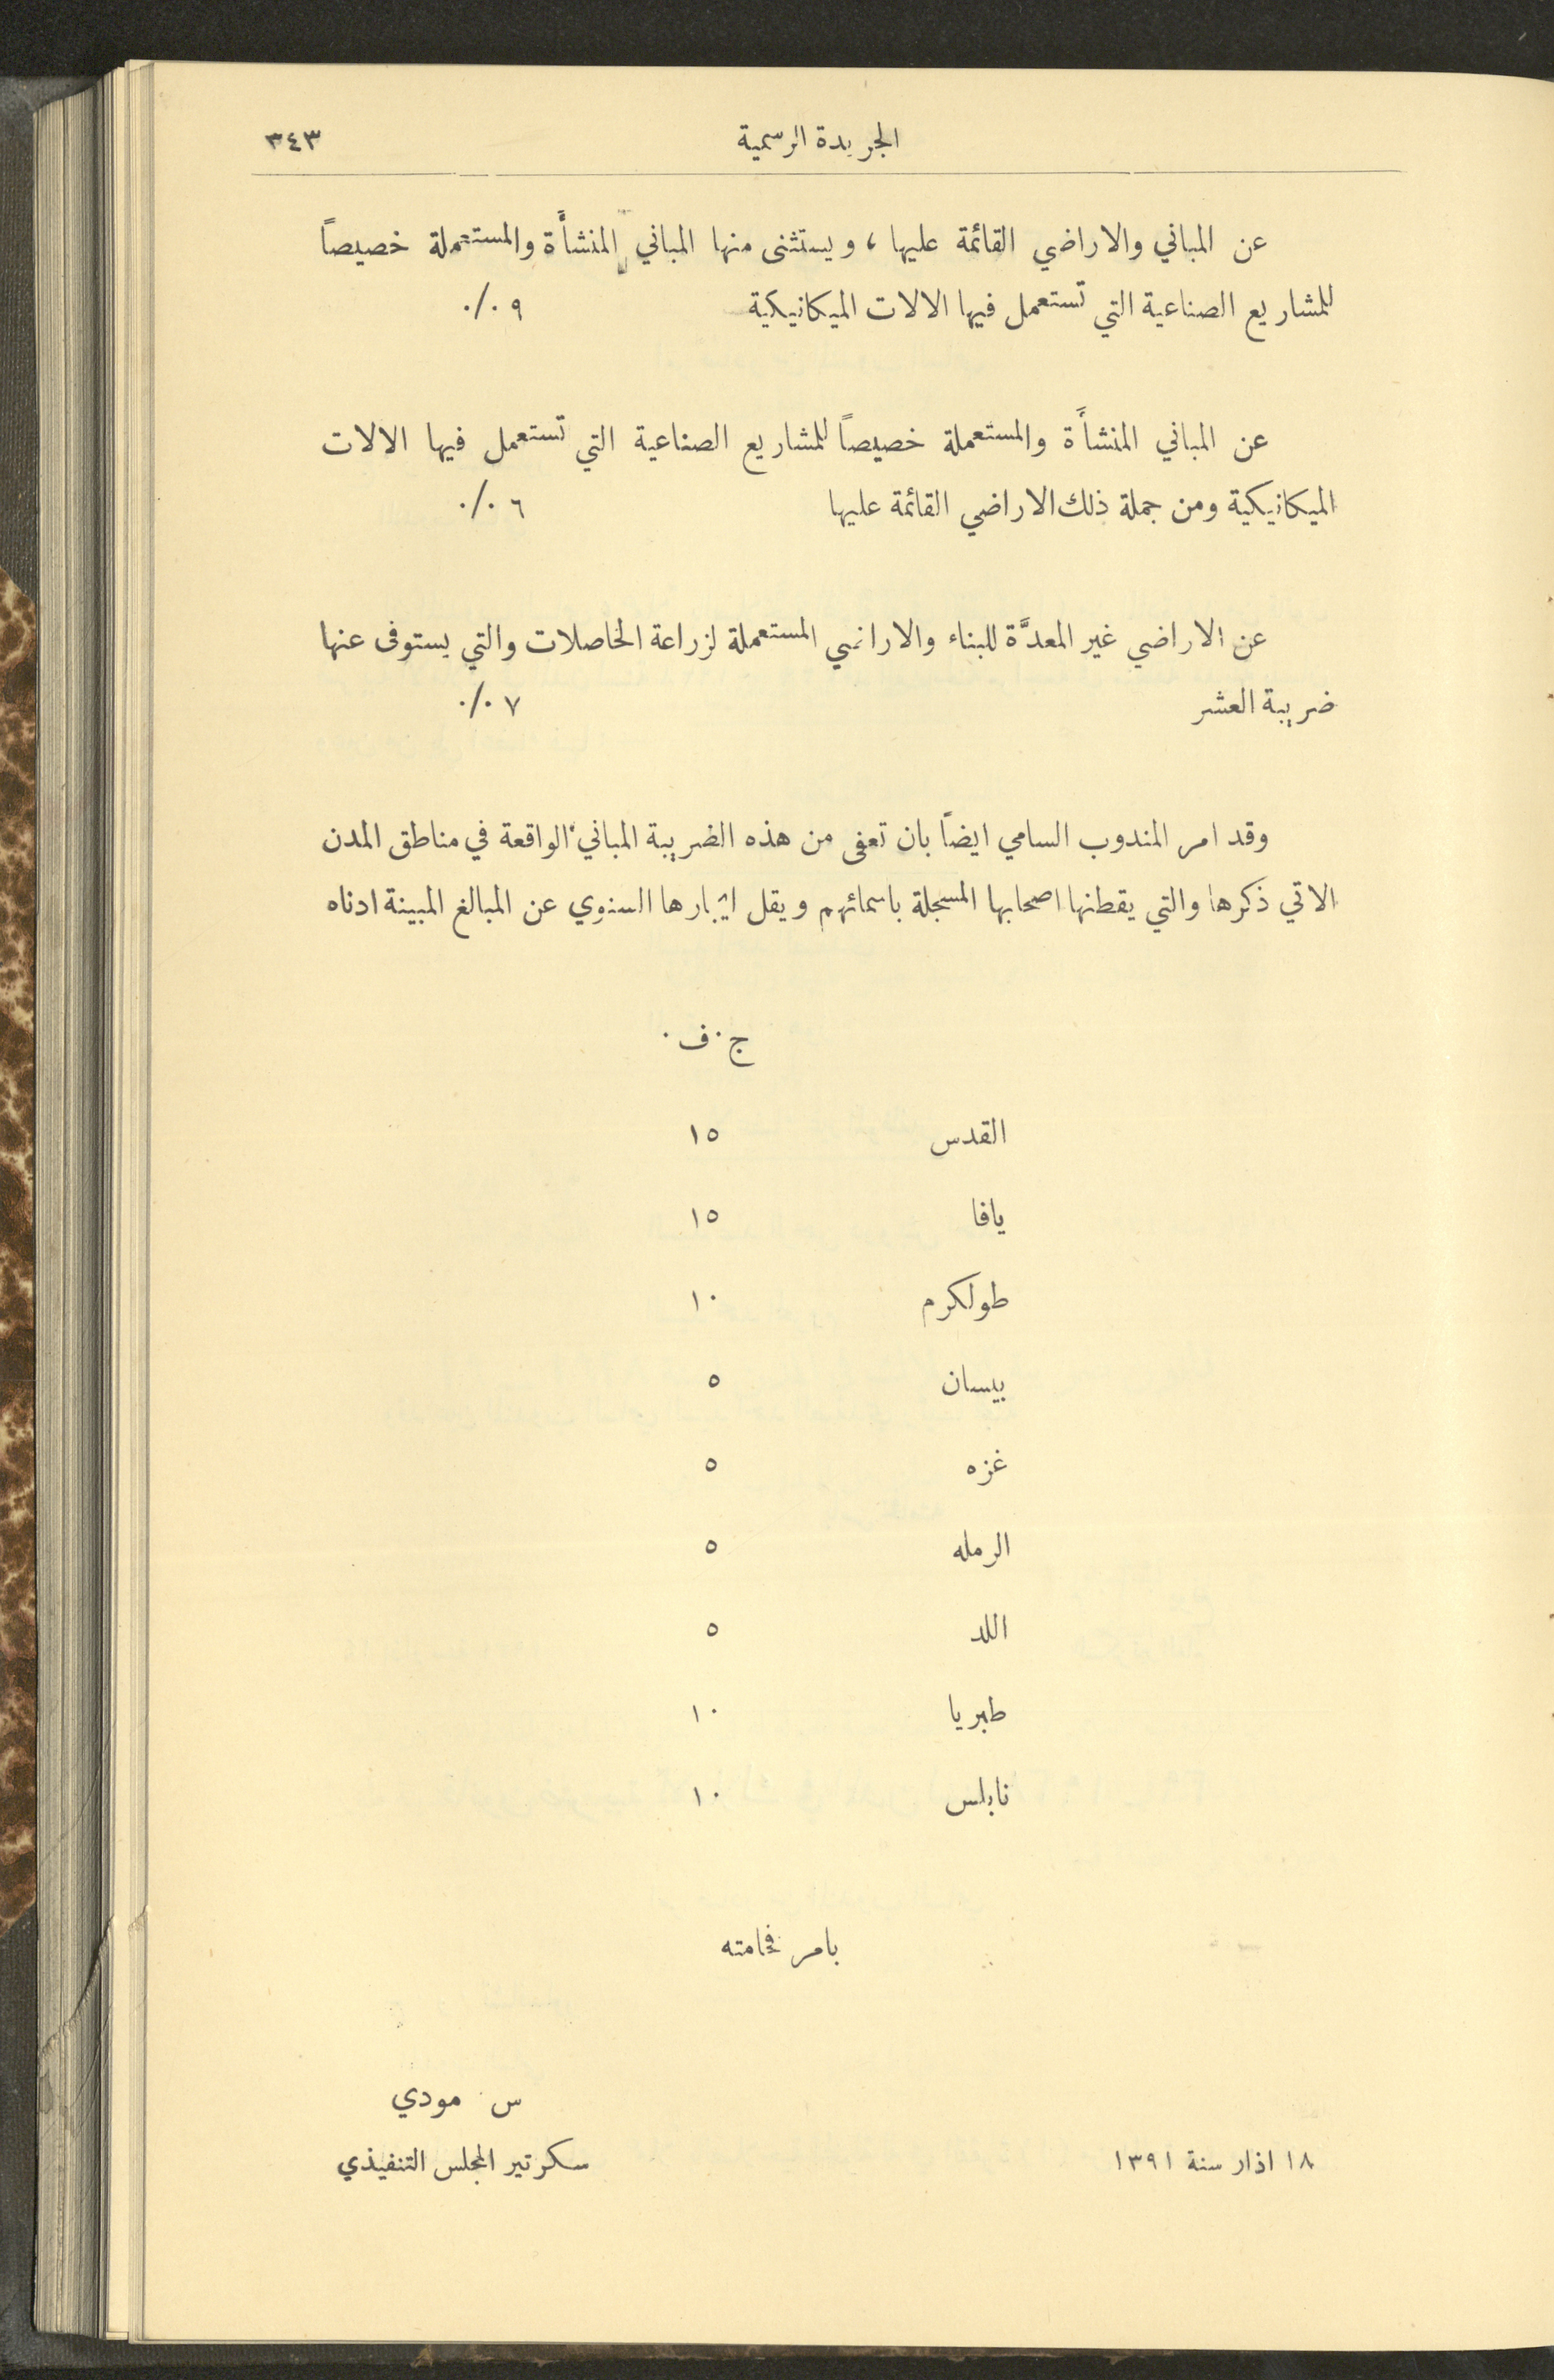 الجريدة الرسمية ٣٤٣
عن المباني والاراضي القائمة عليها ، ويستثنى منها المباني المنشأة والمستعملة خصيصاً
للمشاريع الصناعية التي تستعمل فيها الالات الميكانيكية ٩ ٠/٠
عن المباني المنشأة والمستعملة خصيصاً للمشاريع الصناعية التي تستعمل فيها الالات
الميكانيكية ومن جملة ذلك الاراضي القائمة عليها ٦ ٠/٠
عن الاراضي غير المعدَّة للبناء والاراضي المستعملة لزراعة الخاصلات والتي يستوفى عنها
ضريبة العشر ٧ ٠/٠
وقد امر المندوب السامي ايضاً بان تعفى من هذه الضريبة المباني الواقعة في مناطق المدن
الاتي ذكرها والتي يقطنها اصحابها المسجلة باسمائهم ويقل ايجارها السنوي عن المبالغ المبينة ادناه
ج٠ف٠
القدس ١٥
يافا ١٥
طولكرم ١٠
بيسان ٥
غزه ٥
الرمله ٥
اللد ٥
طبريا ١٠
نابلس ١٠
بامر فخامته
س٠ مودي
١٨ اذار سنة ١٣٩١ سكرتير المجلس التنفيذي